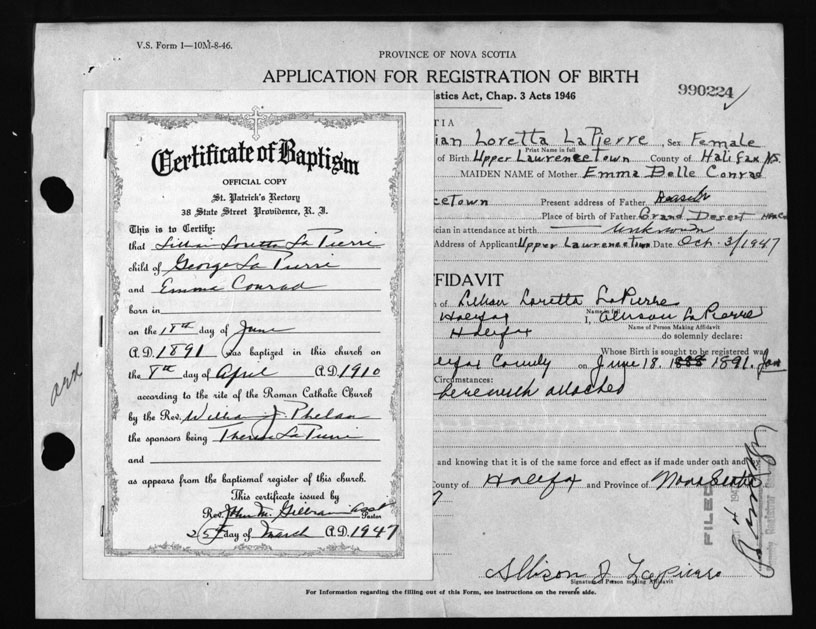 V.S. Form 1—10M-8-46.
PROVINCE OF NOVA SCOTIA
APPLICATION FOR REGISTRATION OF BIRTH
990224
istics Act, Chap. 3 Acts 1946
TIA
ian Loretta LaPierre, Sex Female
Print Name in full
of Birth Upper Lawrencetown County of Halifax N.S.
MAIDEN NAME of Mother Emma Belle Conrad
cetown Present address of Father
Place of birth of Father Grand Desert
ician in attendance at birth Unknown
Address of Applicant Upper Lawrencetown Date Oct. 3/1947
FFIDAVIT
of Lillian Loretta LaPierre
Name in full
Halifax I, LaPierre
Name of Person Making Affidavit
Halifax do solemnly declare:
Whose Birth is sought to be registered was
lifax County on June 18. 1888 1891.
Circumstances:
herewith attached
and knowing that it is of the same force and effect as if made under oath and
County of Halifax and Province of Nova Scotia
FILED
Allison J. Lapierre
Signature of Person making Affidavit
For Information regarding the filling out of this Form, see instructions on the reverse side.
Certificate of Baptism
OFFICIAL COPY
St. Patrick's Rectory
38 State Street Providence, R. I.
This is to Certify:
that Lillian Loretta La Pierre
child of George La Pierri
and Emma Conrad
born in
on the 18th day of June
A.D. 1891 was baptized in this church on
the 8th day of April A.D. 1910
according to the rite of the Roman Catholic Church
by the Rev. William J. Phelan
the sponsors being Theresa La Pierri
and
as appears from the baptismal register of this church.
This certificate issued by
Rev. John M. Asst
Pastor
25th day of March A.D. 1947